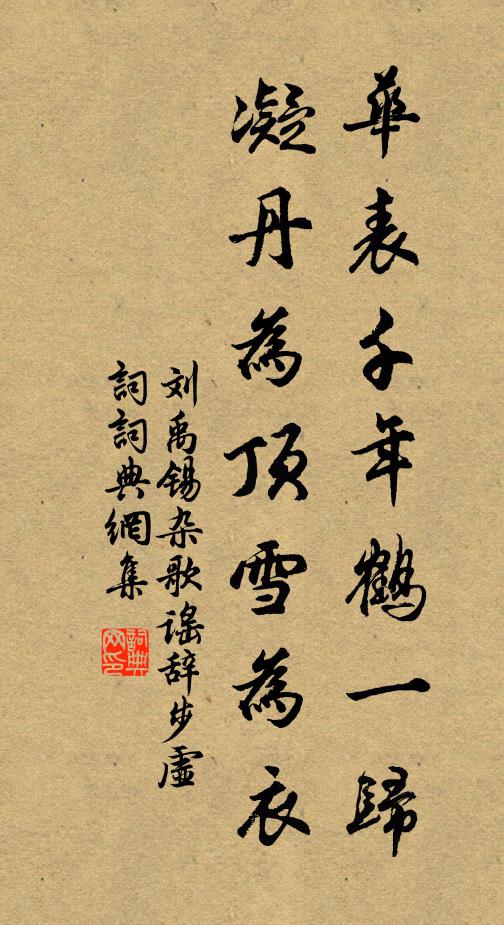 華表千年鶴一歸
凝丹為頂雪為衣
刘禹锡杂歌谣辞步虛
詞詞典網集
詞典
网印